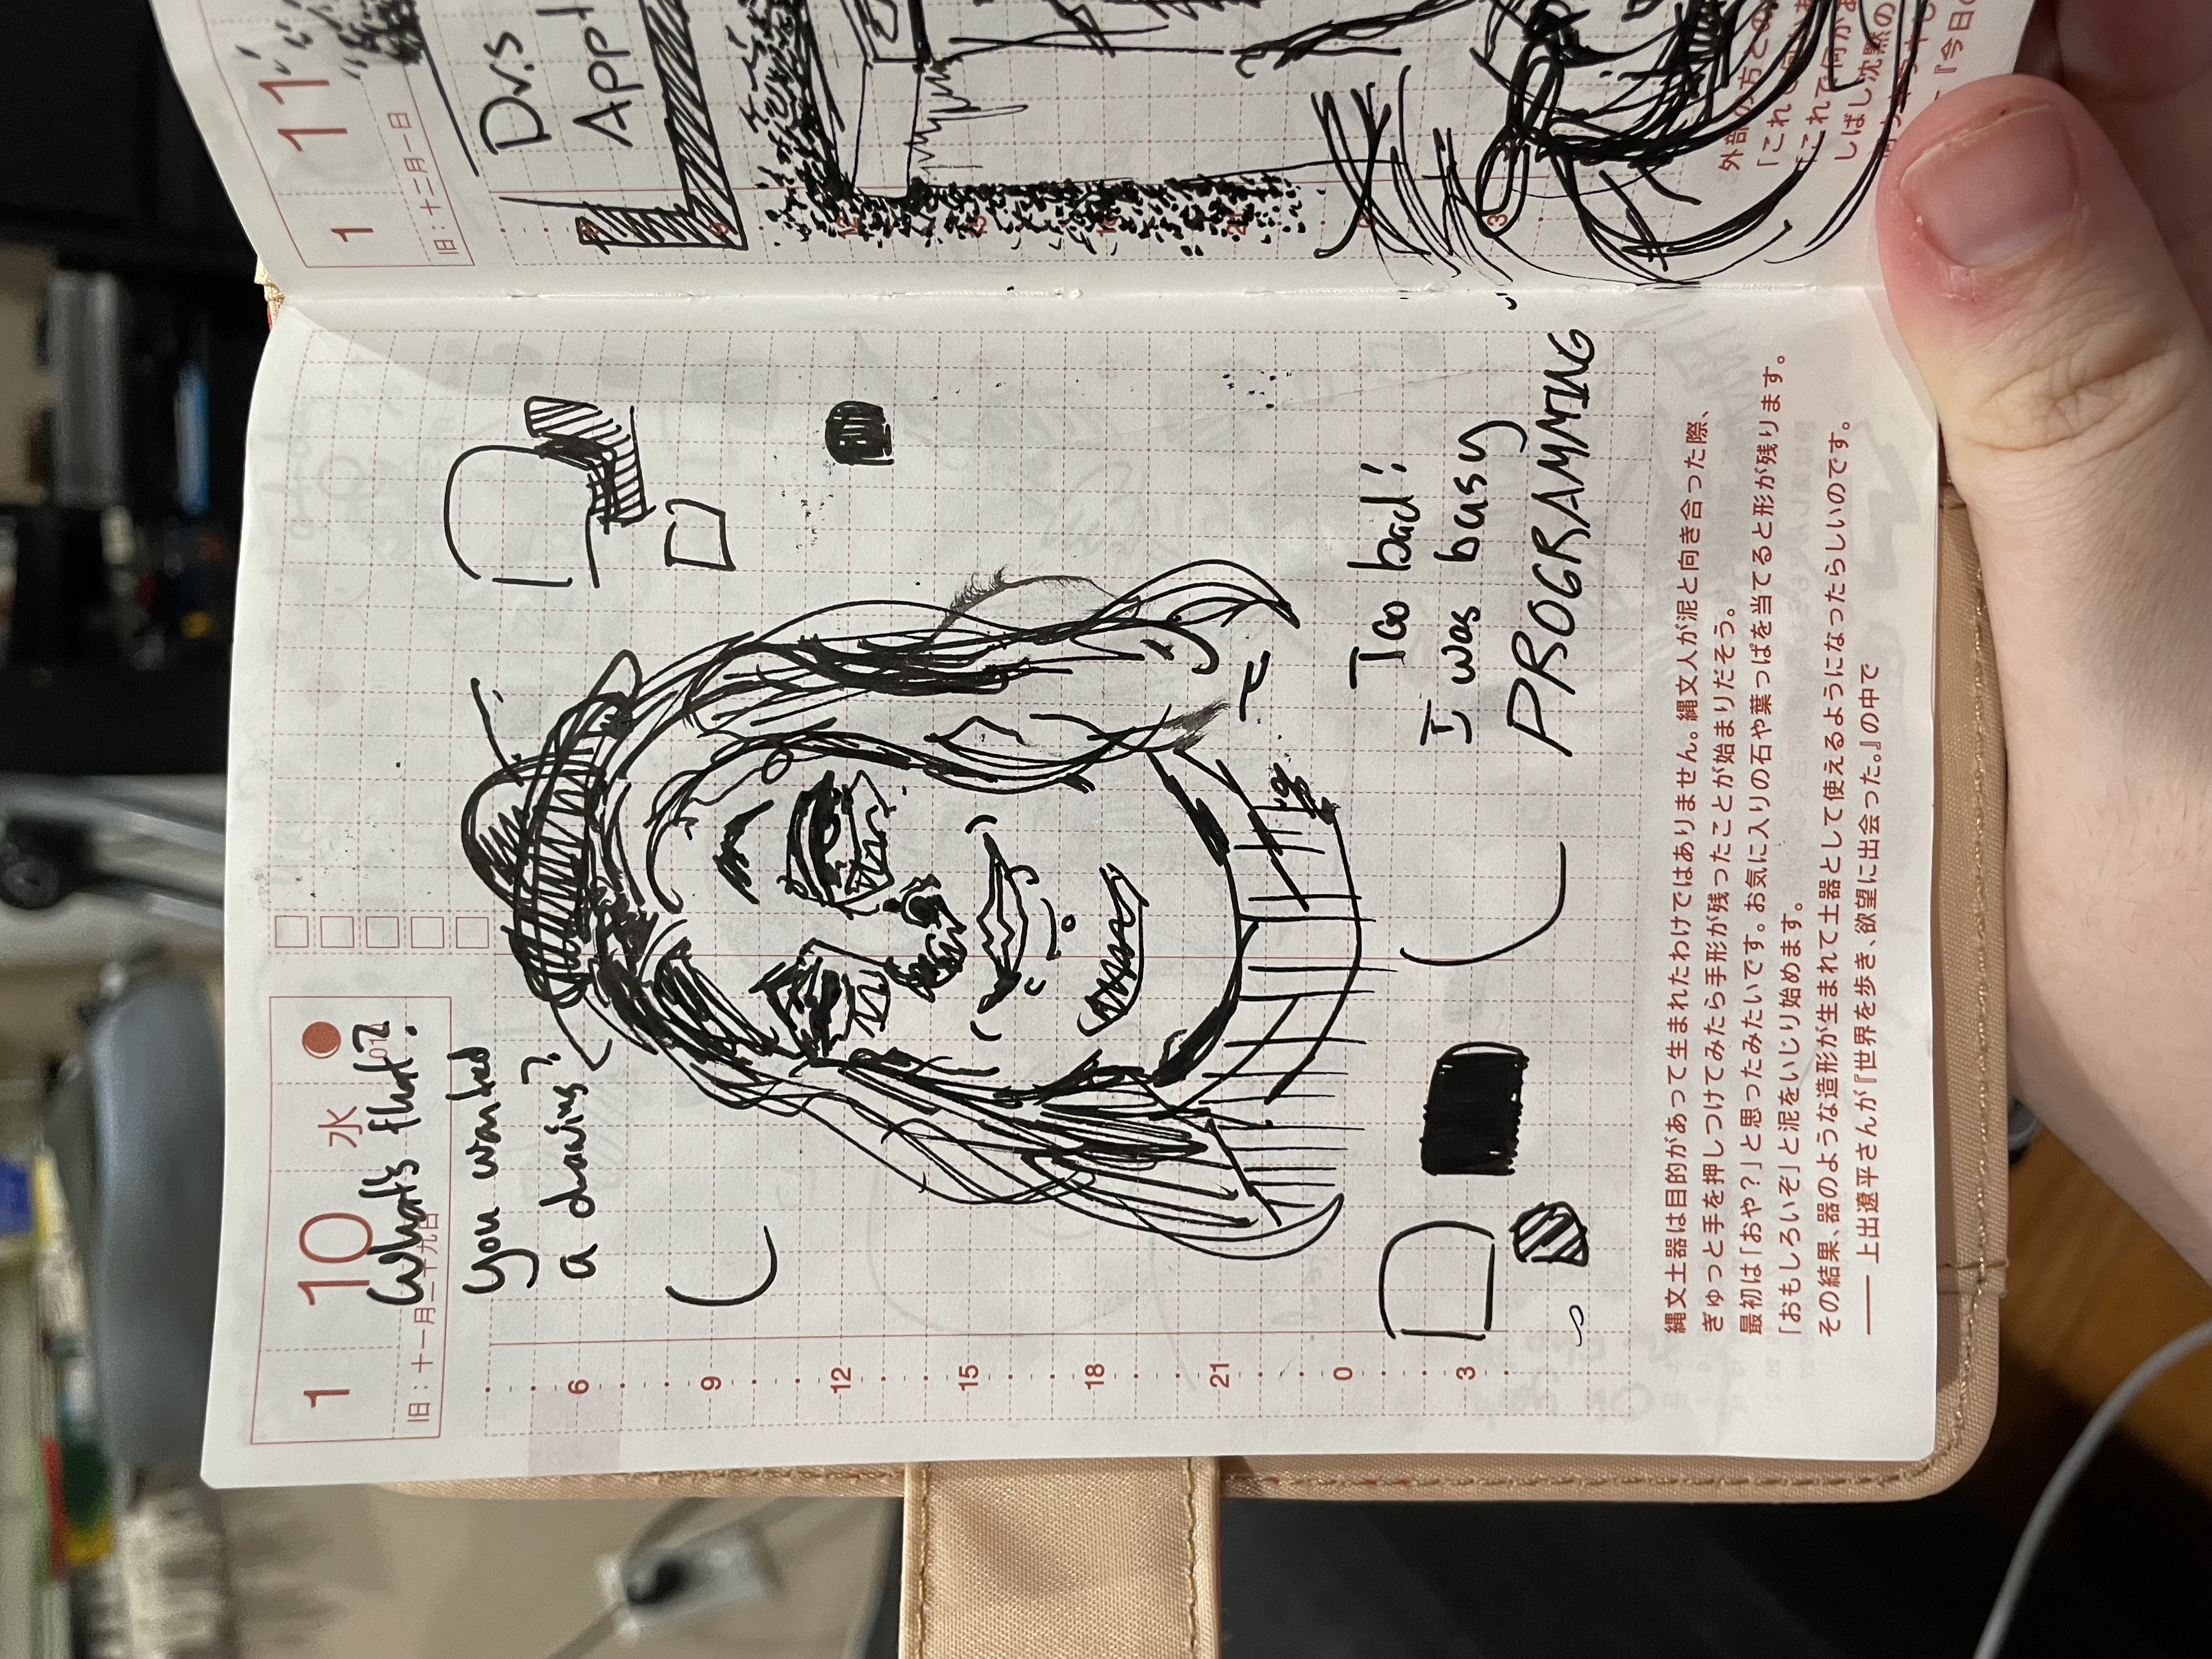 1 10 水
旧：十一月二十九日
What's that?
you wanted
a drawing?
6
9
12
15
18
21
0
3
Too bad!
I was busy
PROGRAMMING
縄文土器は目的があって生まれたわけではありません。縄文人が泥と向き合った際、
ぎゅっと手を押しつけてみたら手形が残ったことが始まりだそう。
最初は「おや？」と思ったみたいです。お気に入りの石や葉っぱを当てると形が残ります。
「おもしろいぞ」と泥をいじり始めます。
その結果、器のような造形が生まれて土器として使えるようになったらしいのです。
―― 上出遼平さんが『世界を歩き、欲望に出会った。』の中で
1 11
旧：十二月一日
Dr.s
App
12
15
21
3
外部の方との
「これで何か
「これで何があ
しばし沈黙の
『今日の